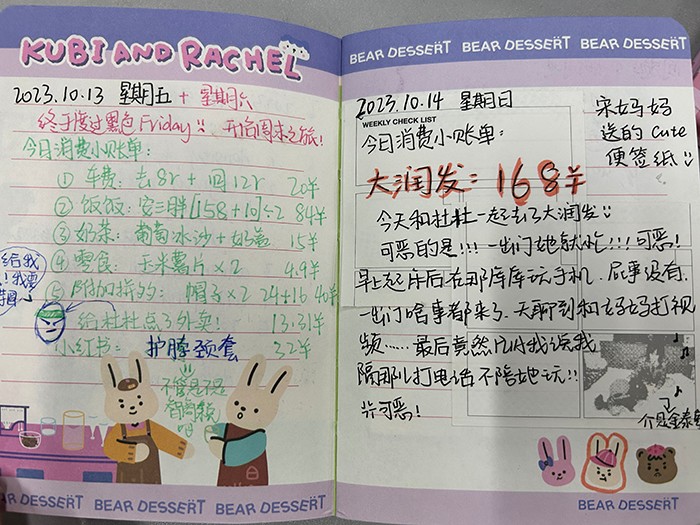 KUBI AND RACHEL
2023.10.13 星期五 + 星期六
终于度过黑色Friday!! 开启周末之旅!
今日消费小账单:
① 车费: 去8r + 回12r 20¥
② 饭饭: 安三胖[158+10]÷2 84¥
③ 奶茶: 葡萄冰沙+奶盖 15¥
④ 零食: 玉米薯片×2 4.9¥
⑤ 附加拼多多: 帽子×2 24+16 40¥
给我
给杜杜点了外卖! 13.31¥
小红书: 护脖颈套 32¥
不管是不是
智商税
BEAR DESSERT BEAR DESSERT BEAR DESSERT
BEAR DESSERT BEAR DESSERT BEAR DESSERT
2023.10.14 星期日
WEEKLY CHECK LIST
今日消费小账单:
宋妈妈
送的Cute
便签纸!!
大润发: 168¥
今天和杜杜一起去了大润发!!
可恶的是!!! 一出门她就忙!!! 可恶!
早上起床后在那库库玩手机. 屁事没有.
一出门啥事都来了. 又聊到和好妈打视
频…… 最后竟然
隔那儿打电话不陪她玩!!
可恶!
BEAR DESSERT